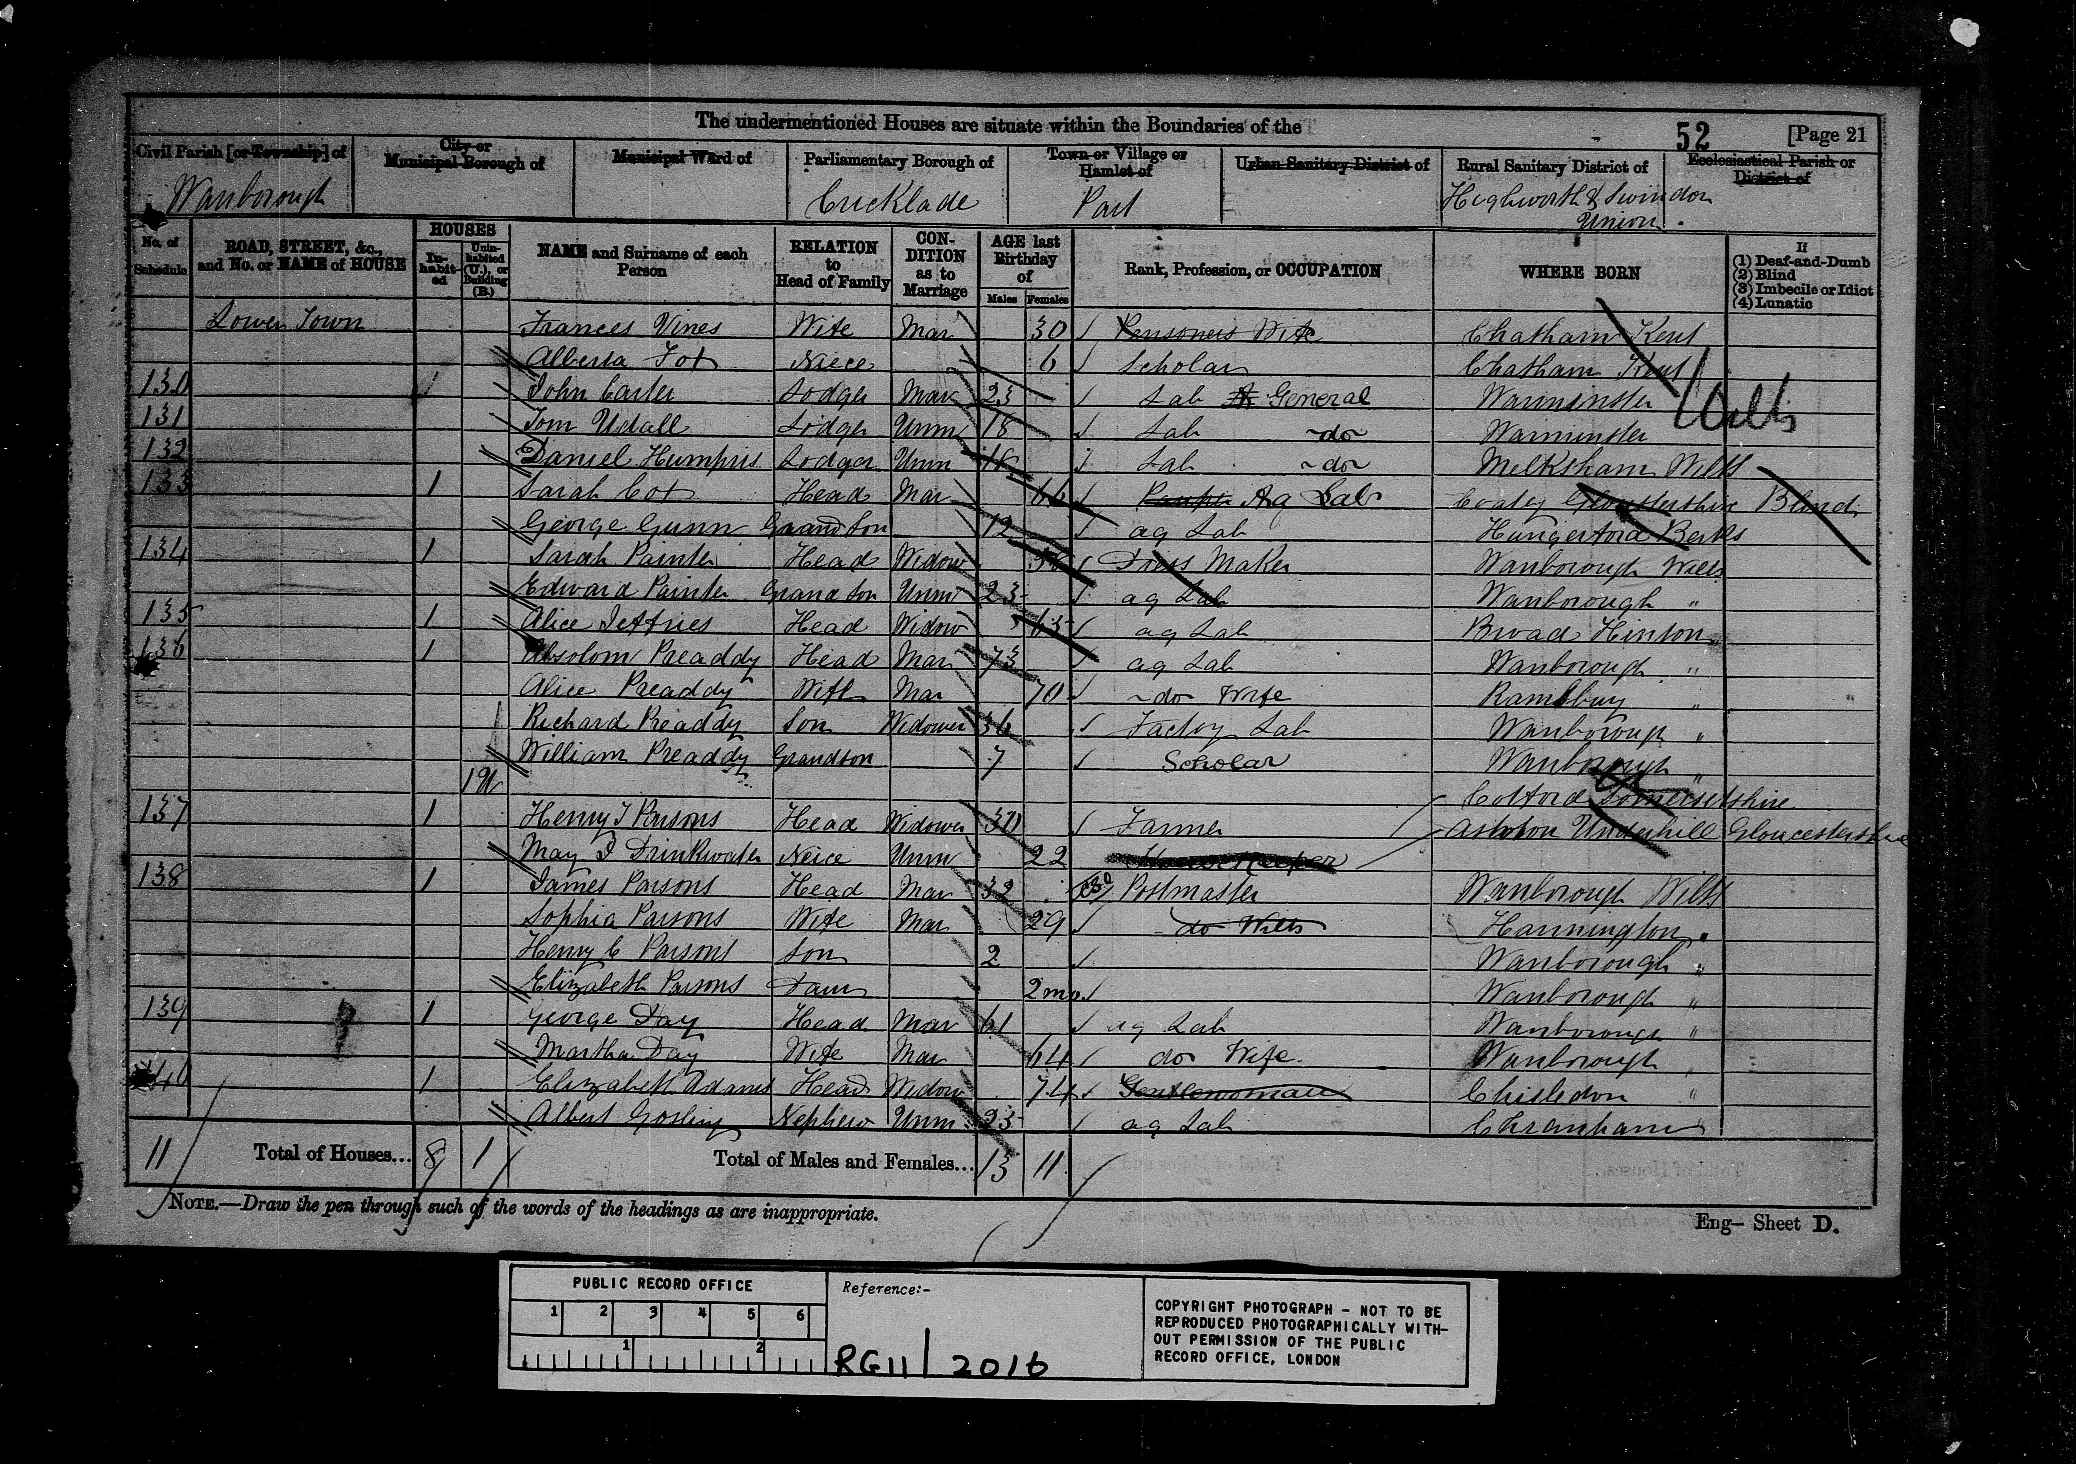 The undermentioned Houses are situate within the Boundaries of the
52 [Page 21
Civil Parish [or Township] of
City or Municipal Borough of
Municipal Ward of
Parliamentary Borough of
Town or Village or Hamlet of
Urban Sanitary District of
Rural Sanitary District of
Ecclesiastical Parish or District of
Wanborough Cricklade Part Highworth & Swindon
Union
No. of Schedule
ROAD, STREET, &c., and No. or NAME of HOUSE
HOUSES
In-habit-ed
Unin-habited (U.), or Building (B.)
NAME and Surname of each Person
RELATION to Head of Family
CON-DITION as to Marriage
AGE last Birthday of
Males Females
Rank, Profession, or OCCUPATION
WHERE BORN
If
(1) Deaf-and-Dumb
(2) Blind
(3) Imbecile or Idiot
(4) Lunatic
Lower Town Frances Vines Wife Mar 30 Pensioners Wife Chatham Kent
Alberta Fox Niece 6 Scholar Chatham Kent
130 1 John Carter Lodger Mar 23 Lab General Warminster Wilts
131 Tom Udall Lodger Unm 18 Lab do Warminster
132 Daniel Humpris Lodger Unm 18 Lab do Melksham Wilts
133 1 Sarah Cox Head Mar 66 Ag Lab Coaley Gloustershire Blind
George Gunn Grandson 12 ag Lab Hungerford Berks
134 1 Sarah Painter Head Widow Dress Maker Wanborough Wilts
Edward Painter Grandson Unm 23 ag Lab Wanborough "
135 1 Alice Jeffries Head Widow 63 ag Lab Broad Hinton "
136 1 Absolom Preaddy Head Mar 73 ag Lab Wanborough "
Alice Preaddy Wife Mar 70 do Wife Ramsbury "
Richard Preaddy Son Widower 36 Factory Lab Wanborough "
William Preaddy Grandson 7 Scholar Wanborough "
1 U
Colford Somersetshire
137 1 Henry J Parsons Head Widower Farmer Ashton Underhill Gloucestershire
May D Drinkwater Neice Unm 22 House Keeper
138 1 James Parsons Head Mar 32 Postmaster Wanborough Wilts
Sophia Parsons Wife Mar 29 do Wife Hannington "
Henry C Parsons Son 2 Wanborough "
Elizabeth Parsons Daur 2 mo Wanborough "
139 1 George Day Head Mar 61 ag Lab Wanborough "
Martha Day Wife Mar 64 do Wife Wanborough
140 1 Elizabeth Adams Head Widow 74 Gentlewoman Chisledon "
Albert Gosling Nephew Unm 23 ag Lab
11 Total of Houses... 8 1 Total of Males and Females... 13 11
NOTE.—Draw the pen through such of the words of the headings as are inappropriate.
Eng— Sheet D.
PUBLIC RECORD OFFICE
1 2 3 4 5 6
1 2
Reference:-
RG11/2016
COPYRIGHT PHOTOGRAPH - NOT TO BE
REPRODUCED PHOTOGRAPHICALLY WITH-
OUT PERMISSION OF THE PUBLIC
RECORD OFFICE, LONDON